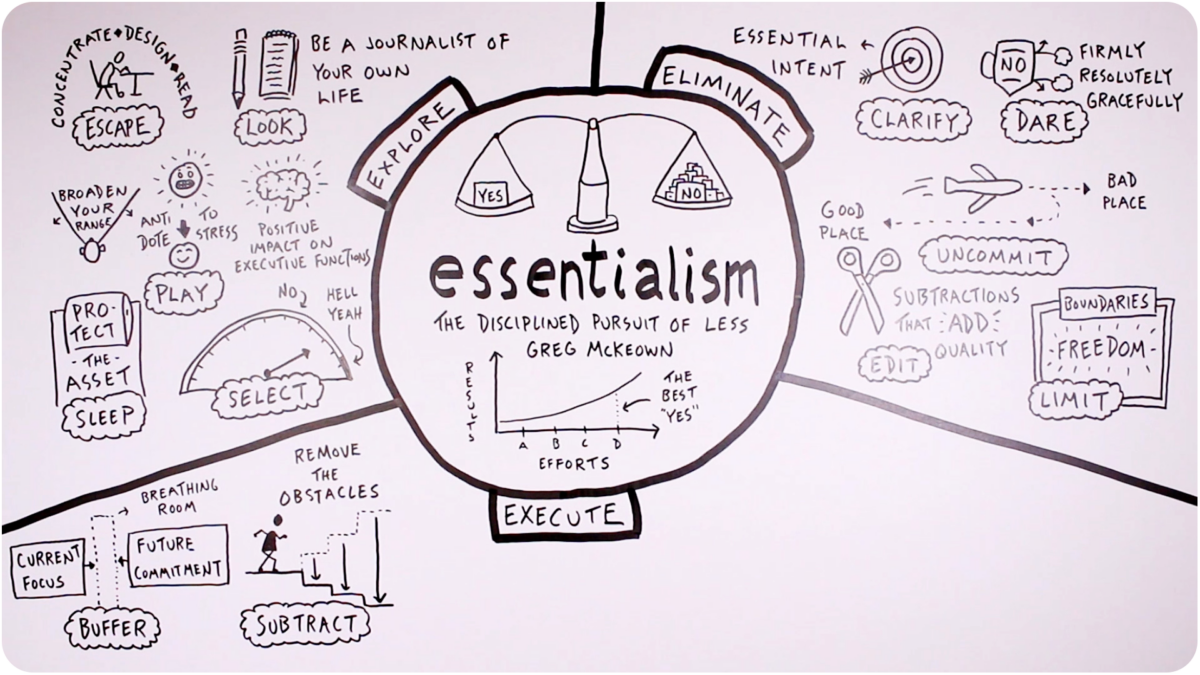 CONCENTRATE • DESIGN • READ
ESCAPE
BE A JOURNALIST OF
YOUR OWN
LIFE
LOOK
BROADEN
YOUR
RANGE
ANTI
DOTE
TO
STRESS
PLAY
POSITIVE
IMPACT ON
EXECUTIVE FUNCTIONS
PRO-
TECT
- THE -
ASSET
SLEEP
NO
HELL
YEAH
SELECT
EXPLORE
ELIMINATE
YES
NO
essentialism
THE DISCIPLINED PURSUIT OF LESS
GREG McKEOWN
RESULTS
A B C D
EFFORTS
THE
BEST
"YES"
EXECUTE
ESSENTIAL
INTENT
CLARIFY
NO
FIRMLY
RESOLUTELY
GRACEFULLY
DARE
BAD
PLACE
GOOD
PLACE
UNCOMMIT
SUBTRACTIONS
THAT ADD
QUALITY
EDIT
BOUNDARIES
FREEDOM
LIMIT
BREATHING
ROOM
CURRENT
FOCUS
FUTURE
COMMITMENT
BUFFER
REMOVE
THE
OBSTACLES
SUBTRACT